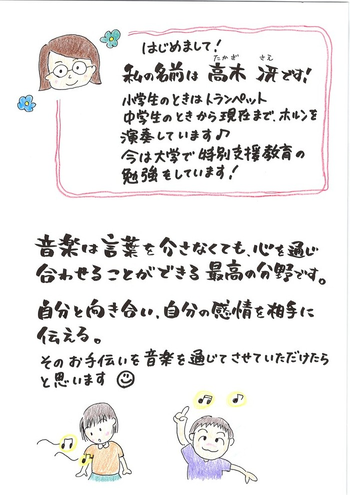 はじめまして！
たかぎ さえ
私の名前は 高木 冴です！
小学生のときはトランペット
中学生のときから現在まで、ホルンを
演奏しています♪
今は大学で 特別支援教育の
勉強もしています！
音楽は言葉を介さなくても、心を通じ
合わせることができる 最高の分野です。
自分と向き合い、自分の感情を相手に
伝える。
そのお手伝いを音楽を通じてさせていただけたら
と思います